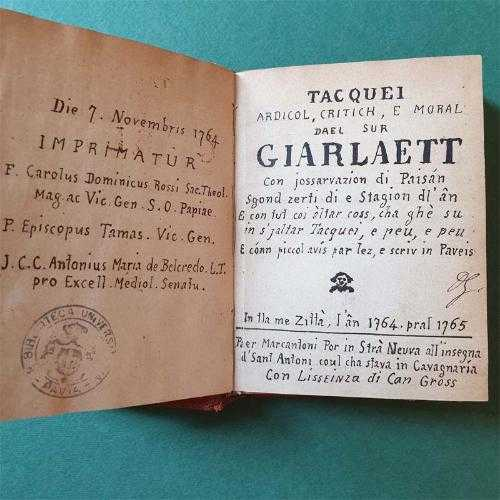 Die 7. Novembris 1764
IMPRIMATUR
F. Carolus Dominicus Rossi Sac. Theol.
Mag. ac Vic. Gen. S. O. Papiae
P. Episcopus Tamas. Vic. Gen.
J. C. C. Antonius Maria de Belcredo. L. T.
pro Excell. Mediol. Senatu.
BIBLIOTECA UNIVERS
PAVIA
TACQUEI
ARDICOL, CRITICH, E MORAL
DAEL SUR
GIARLAETT
Con jossarvazion di Paisán
Sgond zerti dì e Stagion dl'ân
E con tut coi òltar coss, cha ghè su
in s'jaltar Tacquei, e peu, e peu
E cónn piccol avis par lez, e scriv in Paveis
In tla me Zittà, l'ân 1764. pral 1765
Paer Marcantoni Por in Strà Neuva all'insegna
d'Sant Antoni. coul cha stava in Cavagnaria
Con Lisseinza di Can Gross